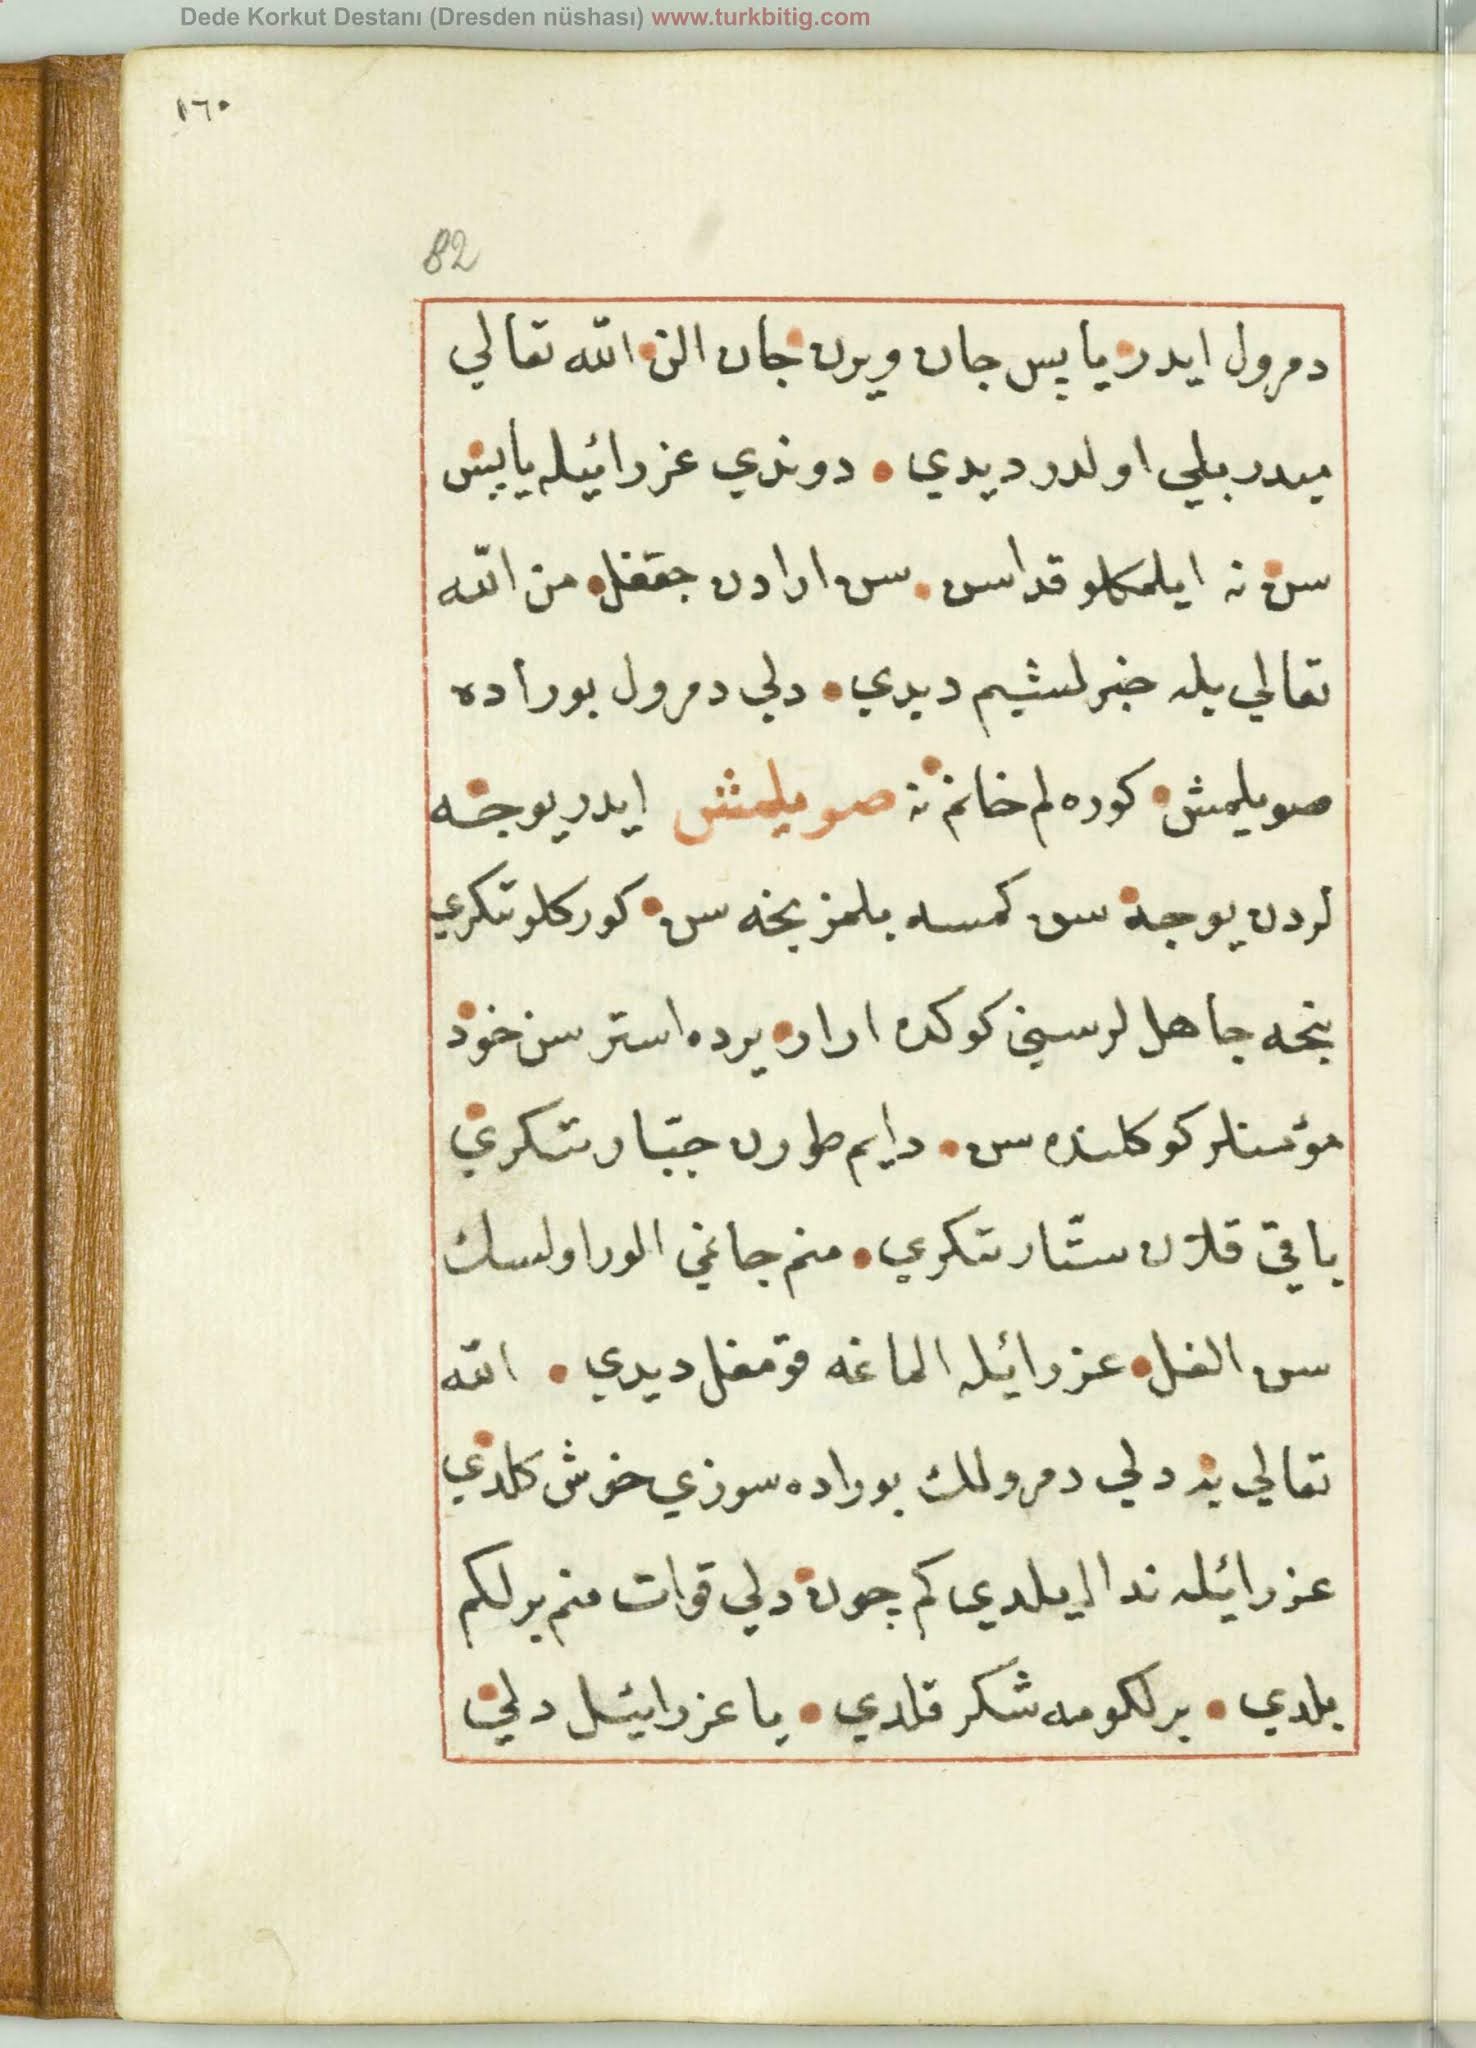 Dede Korkut Destanı (Dresden nüshası) www.turkbitig.com
١٦٠
82
دمرول ايدر يا پس جان ويرن جان الن الله تعالي
ميدر بلي اولدر ديدي • دوندي عزرائيله يا پس
سن نه ايلمكلو قداسن • سن ارادن چقغل • من الله
تعالي يله خبرلشيم ديدي • دلي دمرول بوراده
صويلمش • كوره لم خانم نه صويلمش ايدر يوجه
لردن يوجه سن كمسه بلمز نجه سن • كوركلو تنكري
نجه جاهللر سيني كوكده ارار • يرده استر سن خود
مؤمنلر كوكلنده سن • دايم طورن جبّار تنكري
باقي قلان ستّار تنكري • منم جانمي الور اولسك
سن الغل • عزرائيله الماغه قومغل ديدي • الله
تعالي يه دلي دمرولك بوراده سوزي خوش كلدي
عزرائيله ندا ايلدي كم چون دلي قوات منم برلكم
بلدي • برلكومه شكر قلدي • يا عزرائيل دلي